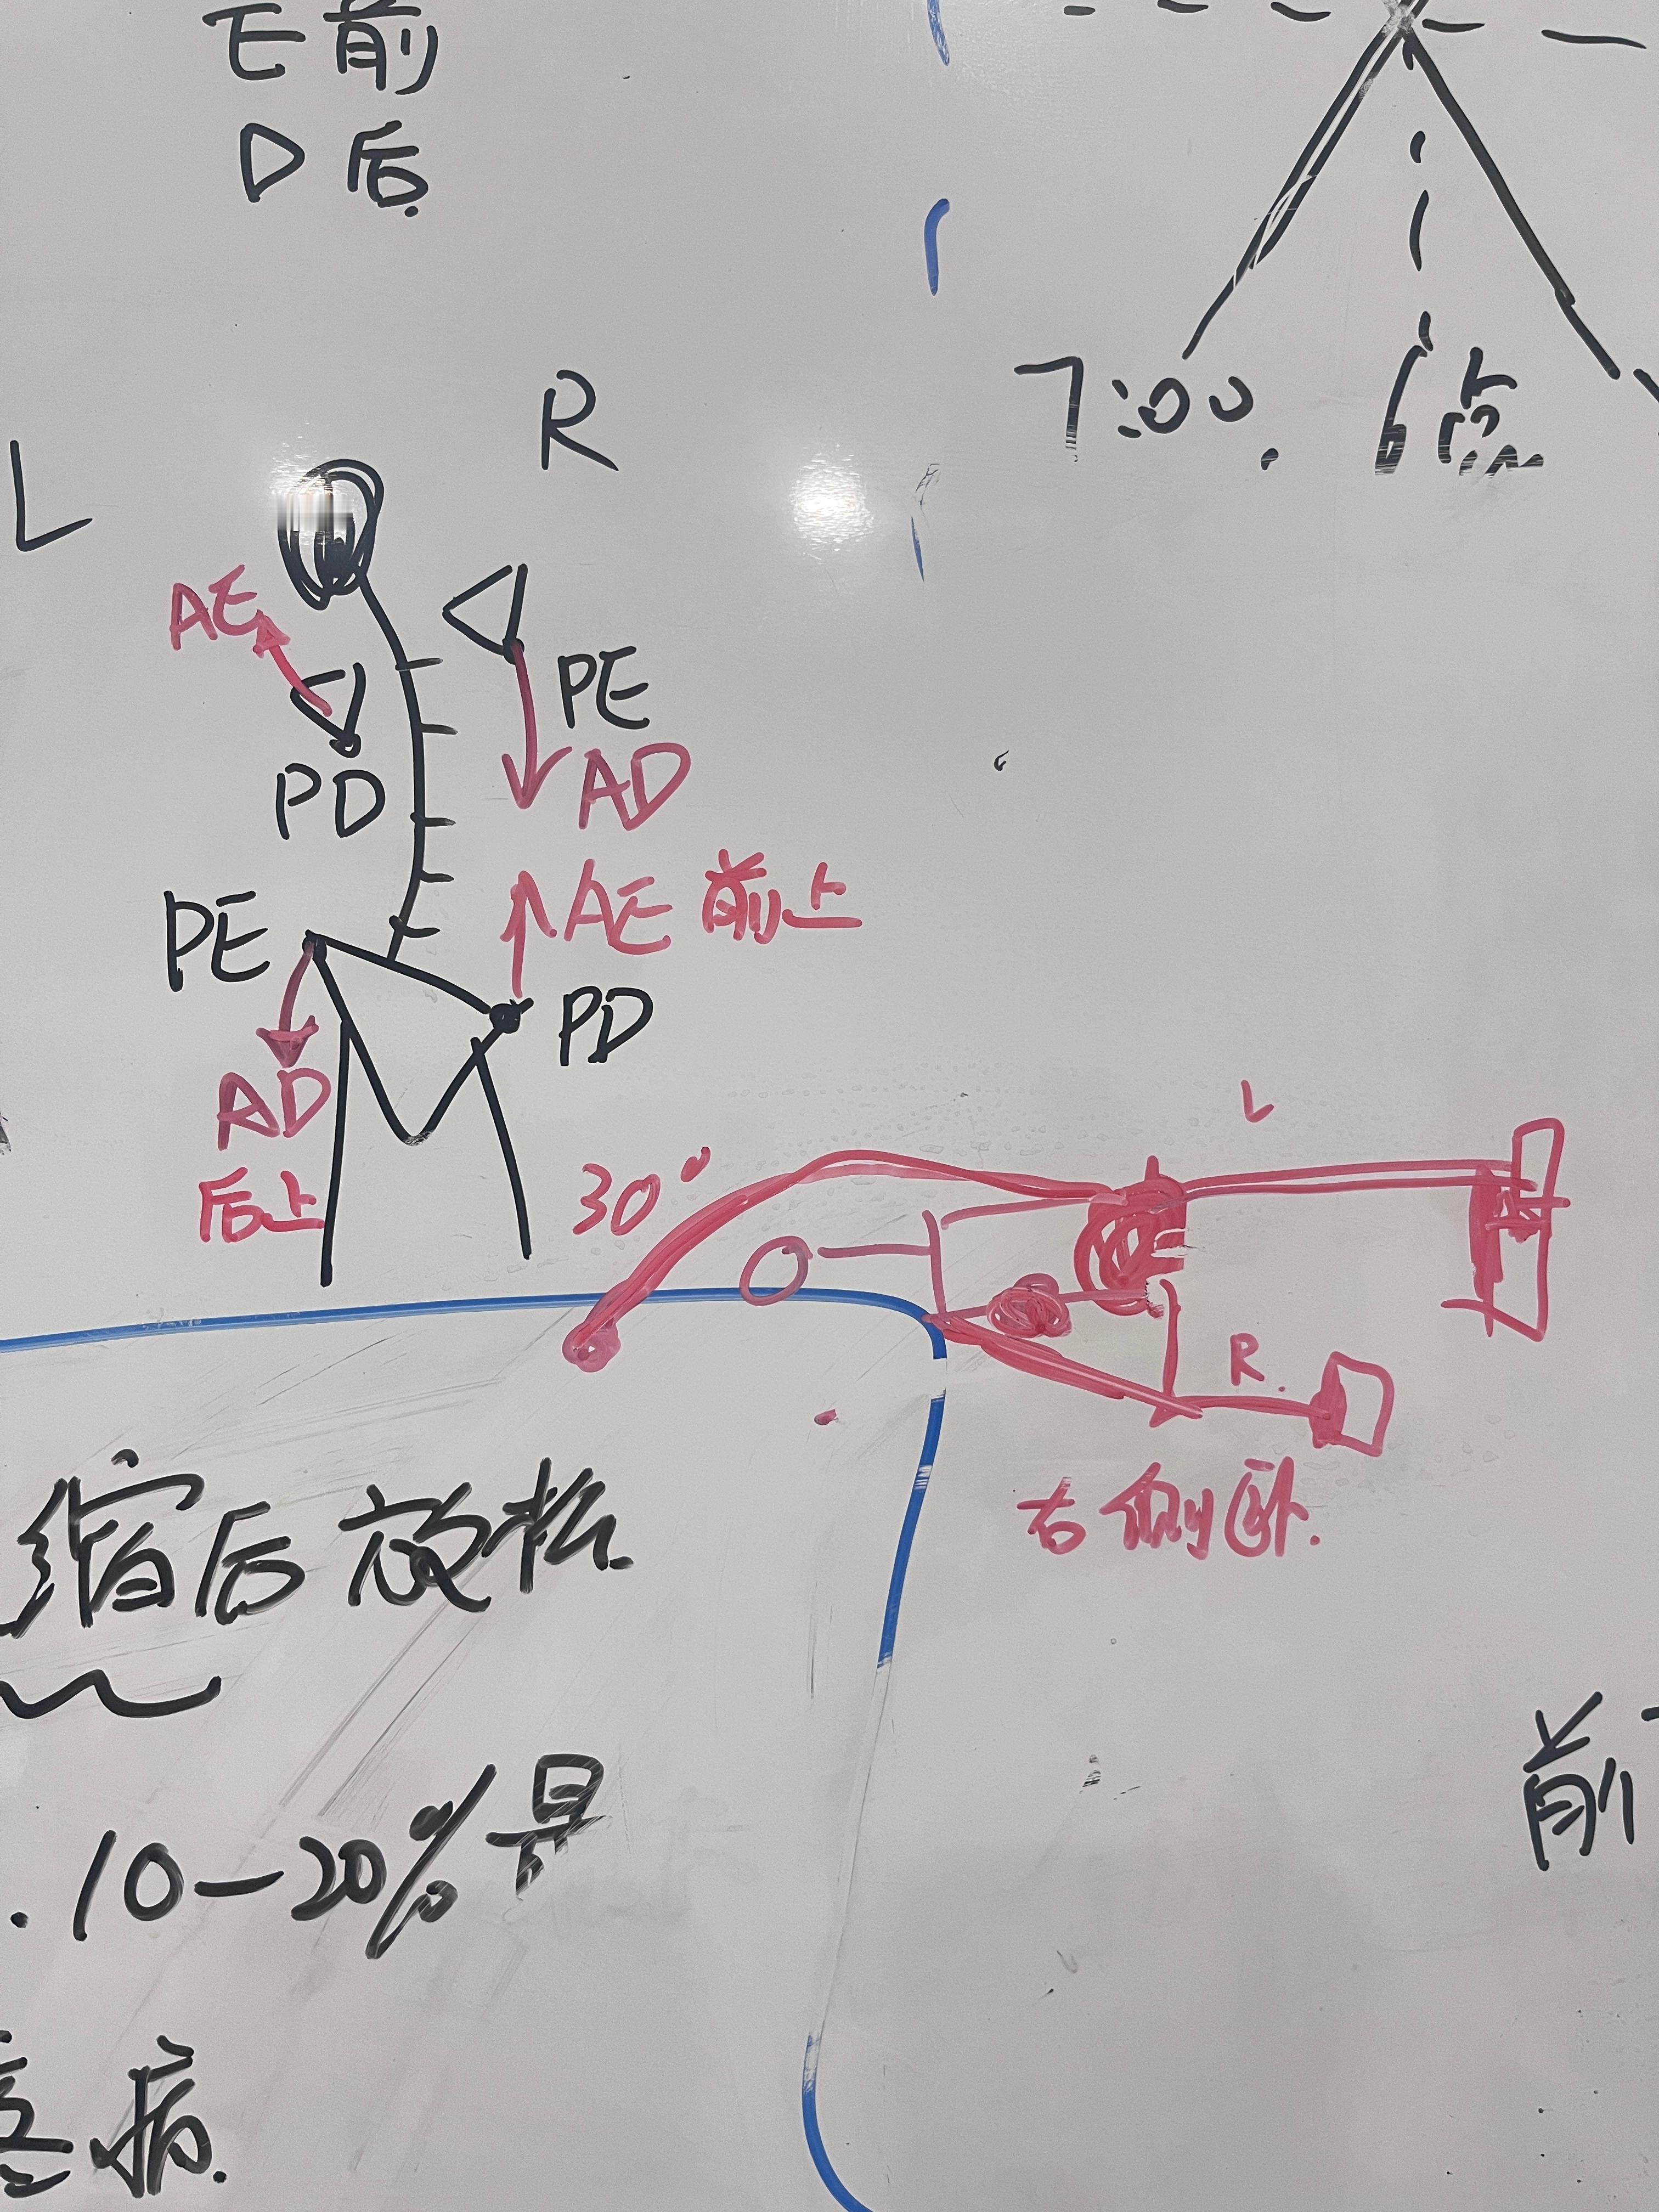 E前
D后
7:00. 6点
L
R
AE
PE
PD
AD
AE 前上
PE
PD
AD
后上
30°
L
R.
右侧卧.
缩后放松
前
. 10-20%
病.